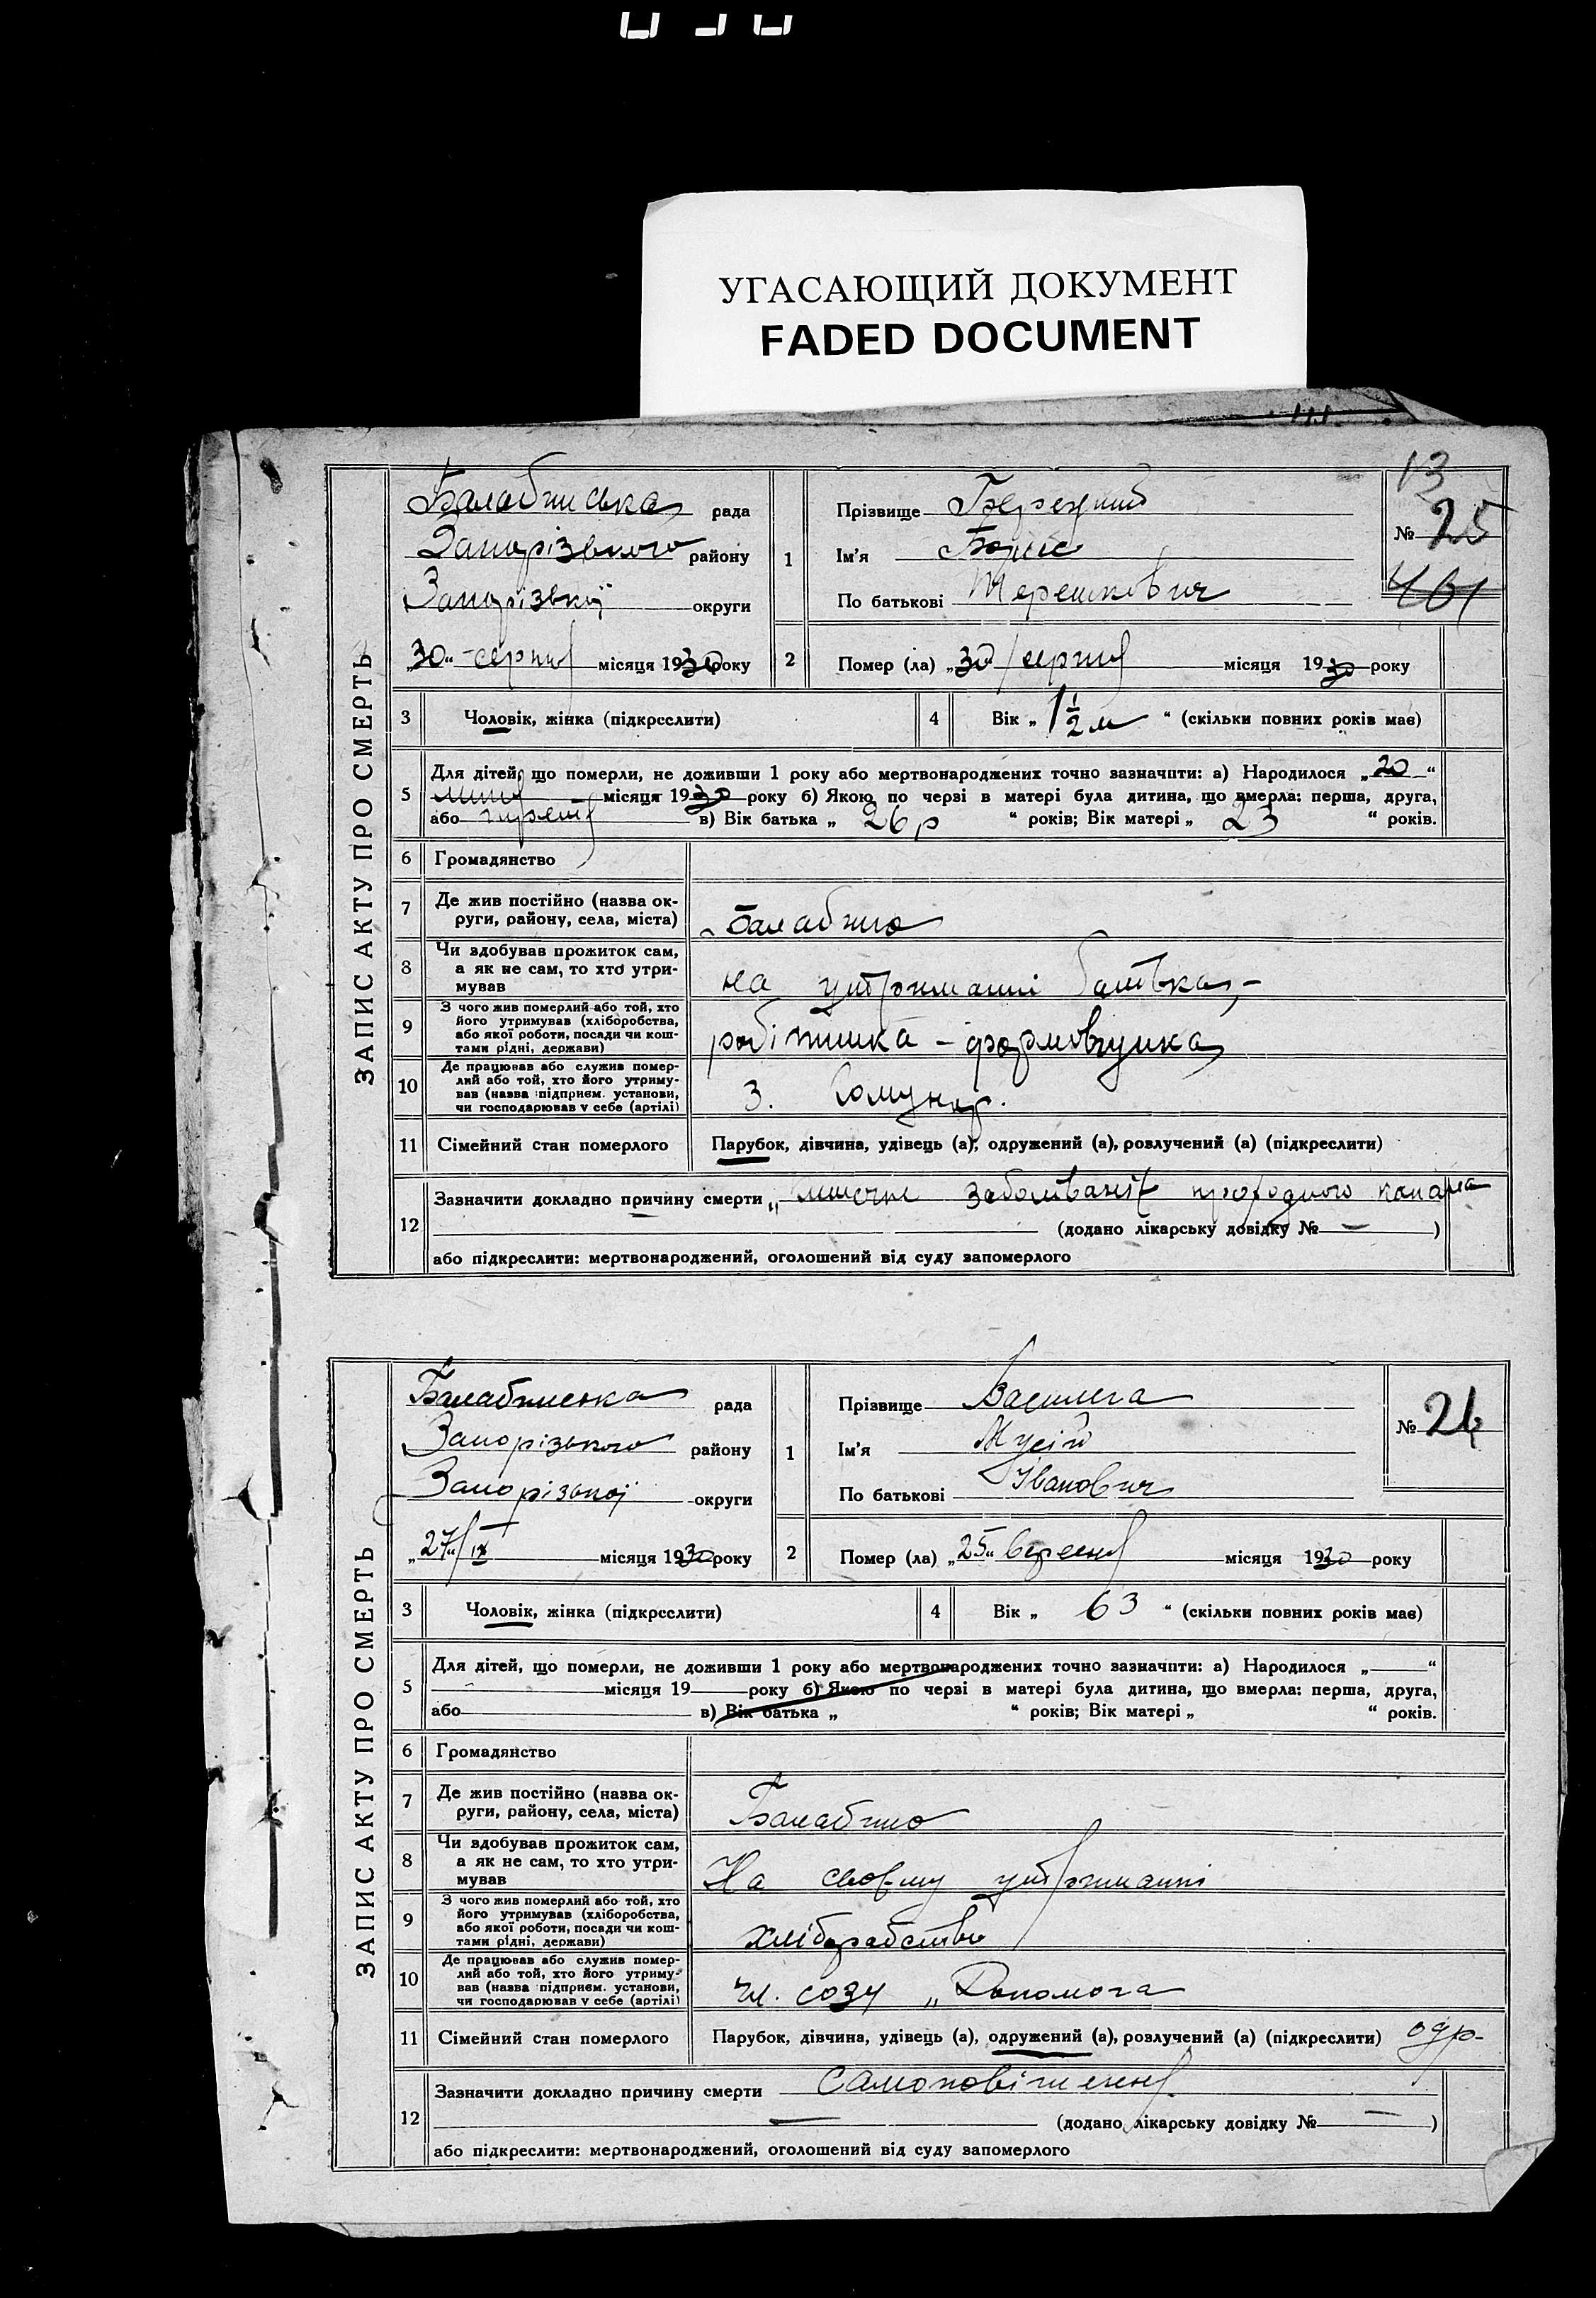 УГАСАЮЩИЙ ДОКУМЕНТ
FADED DOCUMENT
13
ЗАПИС АКТУ ПРО СМЕРТЬ
Балабинська рада
Запорізького району
Запорізької округи
„30“ серпня місяця 1930 року
1
Прізвище
Ім'я Борис
По батькові Терешкович
№ 25
2 Помер (ла) „30 серпня місяця 1930 року
3 Чоловік, жінка (підкреслити)
4 Вік „ 1 1/2 м “ (скільки повних років має)
5 Для дітей, що померли, не доживши 1 року або мертвонароджених точно зазначити: а) Народилося „20“
липня місяця 1930 року б) Якою по черві в матері була дитина, що вмерла: перша, друга,
або третя в) Вік батька „ 26 р “ років; Вік матері „ 23 “ років.
6 Громадянство
7 Де жив постійно (назва округи, району, села, міста) Балабино
8 Чи здобував прожиток сам, а як не сам, то хто утримував
на утриманні батька,-
9 З чого жив померлий або той, хто його утримував (хліборобства, або якої роботи, посади чи коштами рідні, держави)
робітника - формовщика
10 Де працював або служив померлий або той, хто його утримував (назва підприєм. установи, чи господарював у себе (артілі)
З. Комунар.
11 Сімейний стан померлого Парубок, дівчина, удівець (а), одружений (а), розлучений (а) (підкреслити)
12 Зазначити докладно причину смерти „ заболівання каналу
(додано лікарську довідку № — )
або підкреслити: мертвонароджений, оголошений від суду запомерлого
ЗАПИС АКТУ ПРО СМЕРТЬ
Балабинська рада
Запорізького району
Запорізької округи
„27“/IX місяця 1930 року
1
Прізвище Василега
Ім'я Мусій
По батькові Іванович
№ 26
2 Помер (ла) „25“ вересня місяця 1930 року
3 Чоловік, жінка (підкреслити)
4 Вік „ 63 “ (скільки повних років має)
5 Для дітей, що померли, не доживши 1 року або мертвонароджених точно зазначити: а) Народилося „ “
місяця 19 року б) Якою по черві в матері була дитина, що вмерла: перша, друга,
або в) Вік батька „ “ років; Вік матері „ “ років.
6 Громадянство
7 Де жив постійно (назва округи, району, села, міста) Балабино
8 Чи здобував прожиток сам, а як не сам, то хто утримував
На своєму утриманні
9 З чого жив померлий або той, хто його утримував (хліборобства, або якої роботи, посади чи коштами рідні, держави)
хліборобство
10 Де працював або служив померлий або той, хто його утримував (назва підприєм. установи, чи господарював у себе (артілі)
Чл. созу „Допомога
11 Сімейний стан померлого Парубок, дівчина, удівець (а), одружений (а), розлучений (а) (підкреслити) одр-
12 Зазначити докладно причину смерти самоповішення
— (додано лікарську довідку № — )
або підкреслити: мертвонароджений, оголошений від суду запомерлого